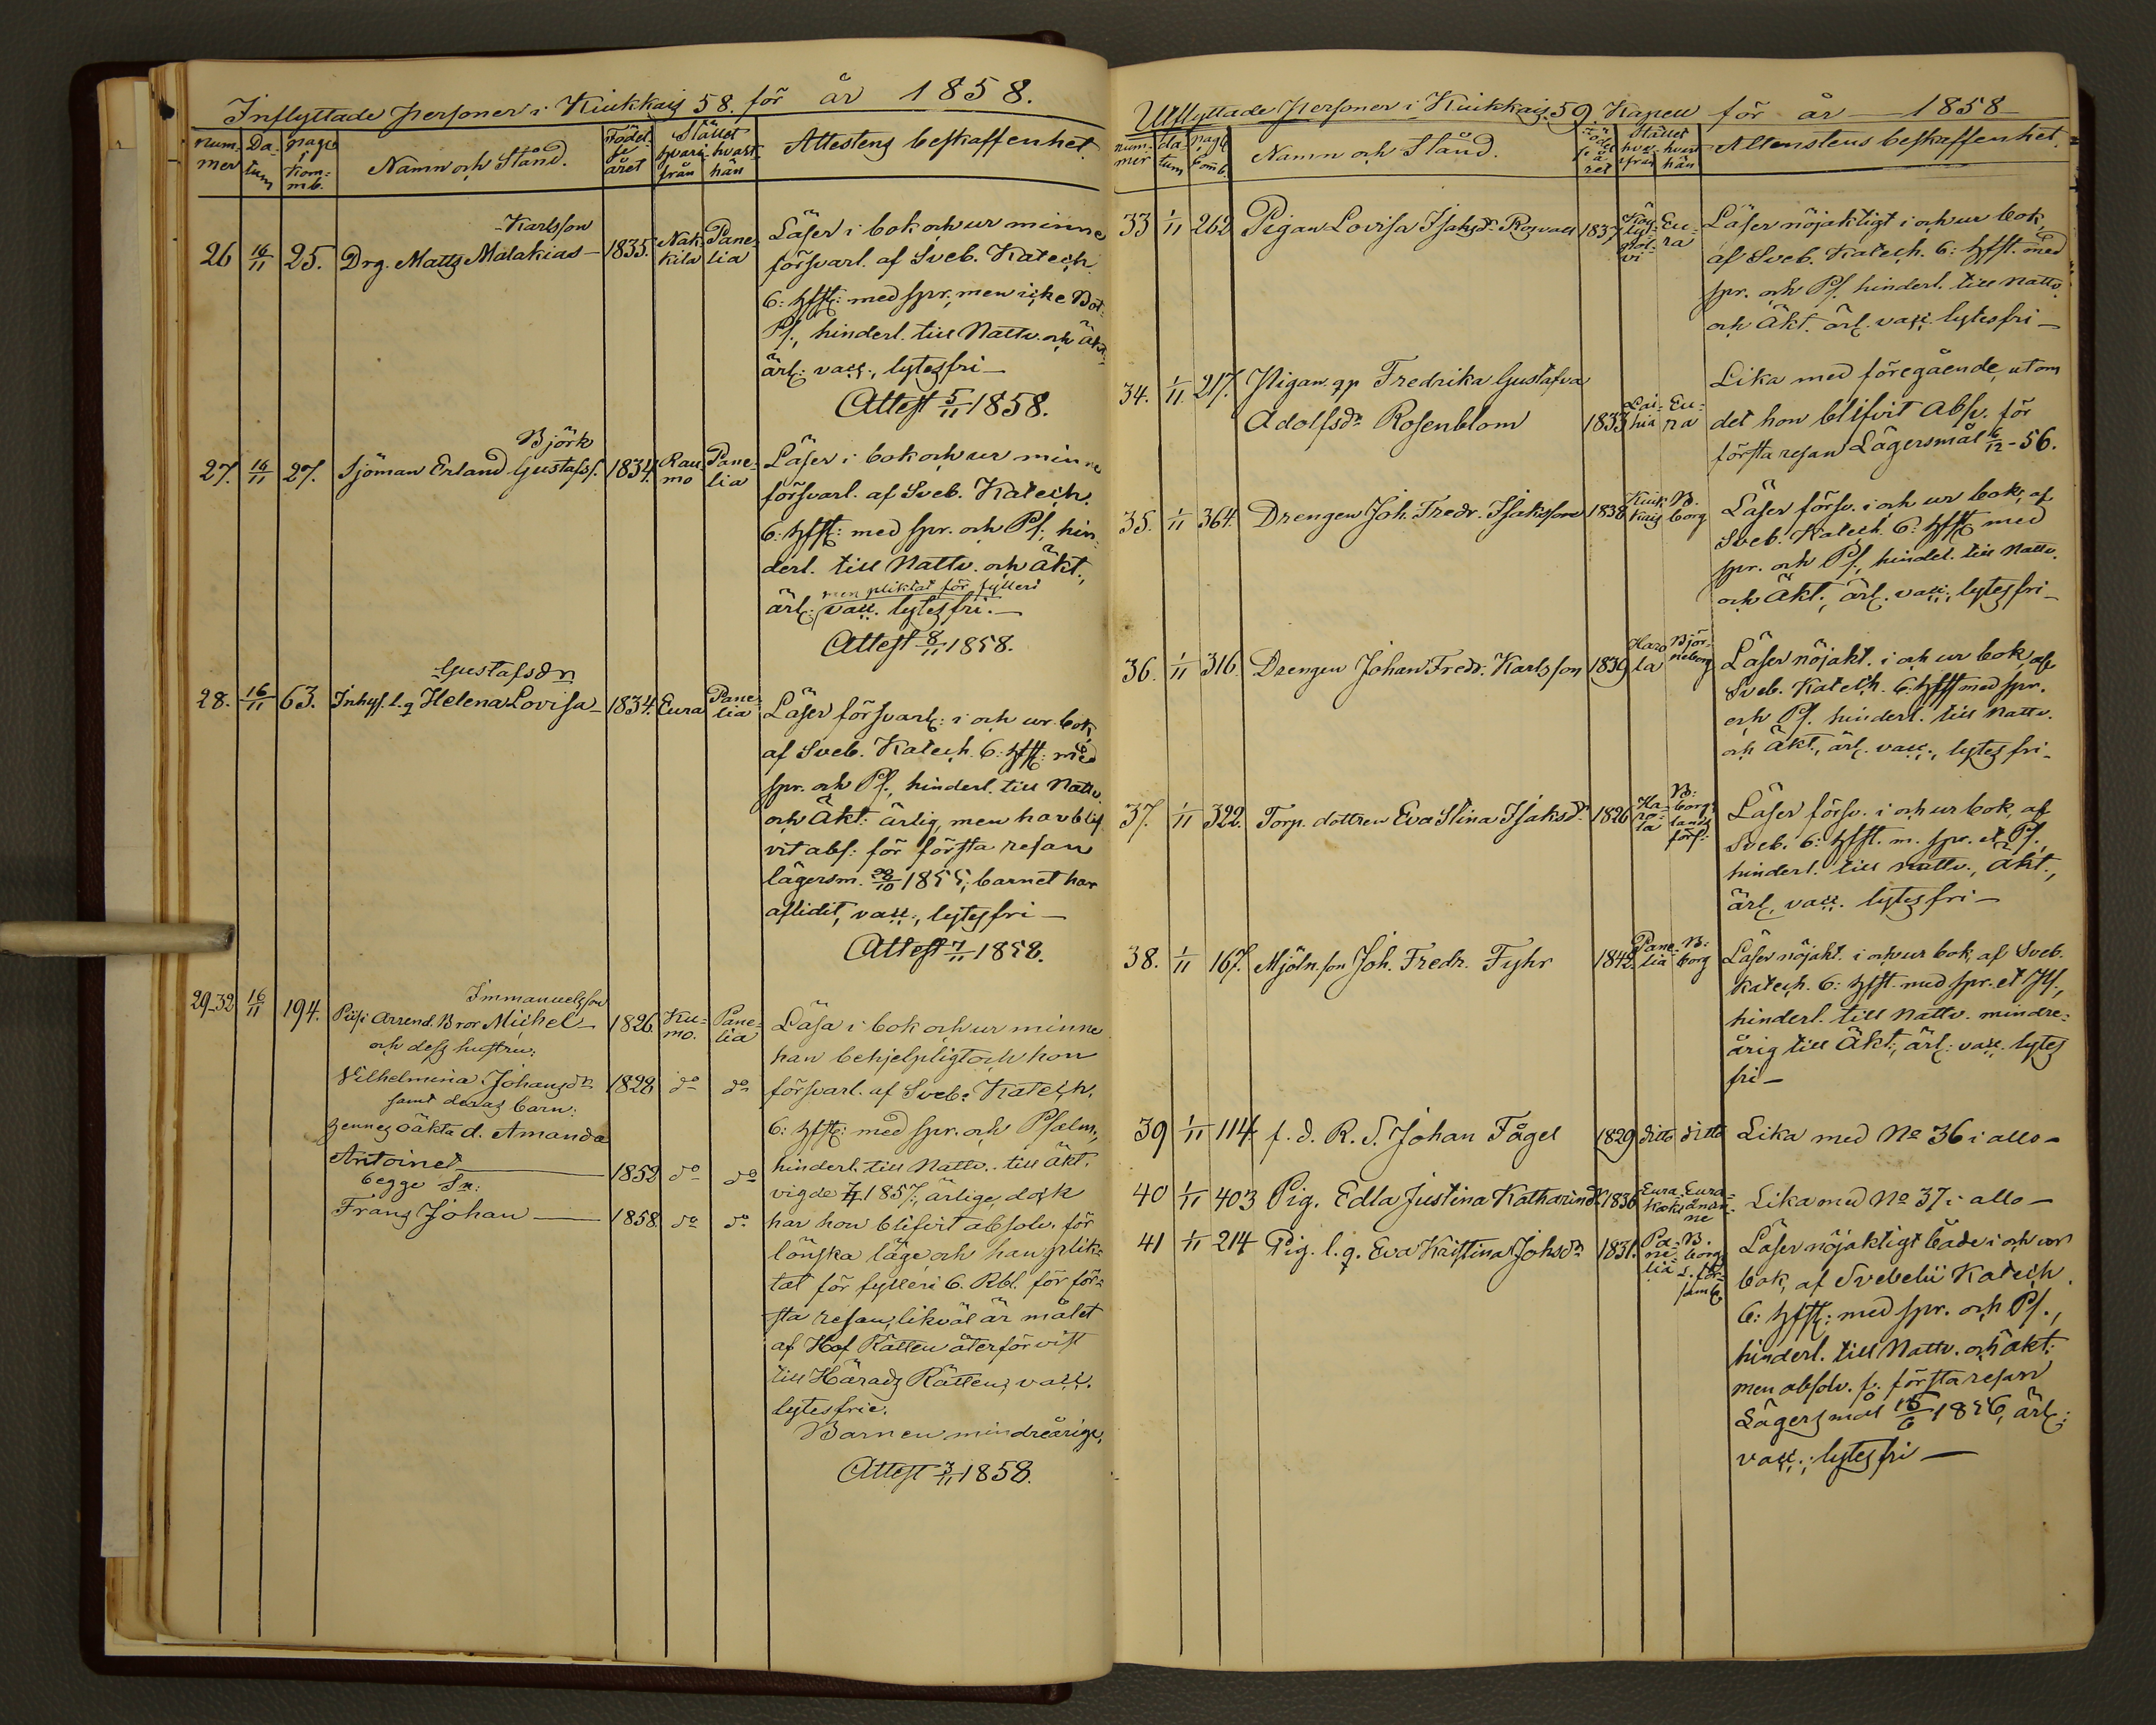 Inflyttade personer i Kiukkais 58. för år 1858.
num-
mer
Da-
tum
pag.
i
Kom-
mb.
Namn och Stånd.
Födel-
se
året
Stället
hvari-
från
hvart-
hän
Attestens beskaffenhet.
26 16/11 25. Drg. Matts Malakias Karlsson — 1835. Nak-
kila
Pane-
lia
Läser i bok och ur minne
försvarl. af Sveb. Katech.
6: hfst: med spr., men icke Bot.
Ps., hinderl. till Nattv. och äkt.
ärl: vacc., lytesfri —
Attest 5/11 1858.
27. 16/11 27. Sjöman Erland Gustafss. Björk 1834. Rau-
mo
Pane-
lia
Läser i bok och ur minne
försvarl. af Sveb. Katech.
6: hfst: med spr. och Ps., hin-
derl. till Nattv. och Äkt.,
men pliktat för fylleri
ärl: vacc. lytesfri. —
Attest 8/11 1858.
28. 16/11 63. Inhys. l. q Helena Lovisa Gustafsdr — 1834. Eura
Pane-
lia
Läser försvarl: i och ur bok,
af Sveb. Katech. 6: hfst: med
spr. och Ps., hinderl. till Nattv.
och Äkt: ärlig, men har blif-
vit abs: för första resan
lägersm. 28/10 1855; barnet har
aflidit, vacc., lytesfri —
Attest 7/11 1858.
29-32 16/11 194. Immanuelsson
Arrend. Bror Michel — 1826. Ku-
mo.
Pane-
lia
och dess hustru:
Vilhelmina Johansdr 1828 do do
samt deras barn:
hennes oäkta d. Amanda
Antoinet — 1852 do do
begge Sn:
Frans Johan — 1858. do do
Läsa i bok och ur minne
han behjelpligt och hon
försvarl. af Sveb. Katech.
6: hfst: med spr. och Psalm,
hinderl. till Nattv. till Äkt.
vigde 1857, ärlige, dock
har hon blifvit absolv. för
lönska läge och han plik-
tat för fylleri 6. Rbl. för för-
sta resan, likväl är målet
af Hof Rätten återförvist
till Härads Rätten, vacc.
lytesfrie.
Barnen mindreårige.
Attest 3/11 1858.
Utflyttade personer i Kiukkais. 59 Kapell för år — 1858 —
num-
mer
da-
tum
pag. i
Comb.
Namn och Stånd.
Fö-
del-
seå-
ret
Stället
hvar-
ifrån
hvart
hän
Attenstens beskaffenhet.
33 1/11 262 Pigan Lovisa Isaksdr Rosvall 1837 Eu-
ra
Läser nöjaktigt i och ur bok,
af Sveb. Katech. 6: hfst. med
spr. och Ps. hinderl. till Nattv.
och Äkt. ärl. vacc. lytesfri —
34. 1/11 217. Pigan qp Fredrika Gustafva
Adolfsdr Rosenblom 1833 Lai-
hia
Eu-
ra
Lika med föregående, utom
det hon blifvit Abs. för
första resan Lägersmål 6/12 - 56.
35. 1/11 364. Drengen Joh. Fredr. Isaksson 1838 Kiuk-
kais
B.
borg
Läser försv. i och ur bok, af
Sveb. Katech. 6: hfst med
spr. och Ps., hinderl. till Nattv.
och Äkt., ärl. vacc., lytesfri —
36. 1/11 316. Drengen Johan Fredr. Karlsson 1839 Haro
la
Björ-
neborg
Läser nöjakt. i och ur bok, af
Sveb. Katech. 6: hfst med spr.
och Ps. hinderl. till Nattv.
och Äkt., ärl. vacc., lytesfri —
37. 1/11 322. Torp. dottren Eva Stina Isaksdr 1826 Ha-
ro-
la
B:
borgs
lands
förs:
Läser försv. i och ur bok, af
Sveb. 6: hfst. m. spr. et Ps.,
hinderl. till Nattv., Äkt.,
ärl, vacc. lytesfri —
38. 1/11 167. Mjöln. son Joh. Fredr. Fyhr 1842. Pane-
lia
B:
borg
Läser nöjakt. i och ur bok, af Sveb.
Katech. 6: hfst. med spr. et Ps.,
hinderl. till Nattv. mindre-
årig till Äkt., ärl: vacc. lytes
fri —
39 1/11 114 f. d. R. S. Johan Fågel 1829 ditto ditto Lika med No 36 i allo —
40 1/11 403 Pig. Edla Justina Katharinadr 1836 Eura
Eura-
Lika med No 37 i allo —
41 1/11 214 Pig. l. q. Eva Kristina Johsdr 1831. Pa-
ne-
lia
B.
borgs
l. för-
saml.
Läser nöjaktigt både i och ur
bok, af Svebelii Katech.
6: hfst: med spr. och Ps.,
hinderl. till Nattv. och äkt.
men absolv. f. första resan
Lägersmål 15/6 1856, ärl:
vacc., lytesfri —